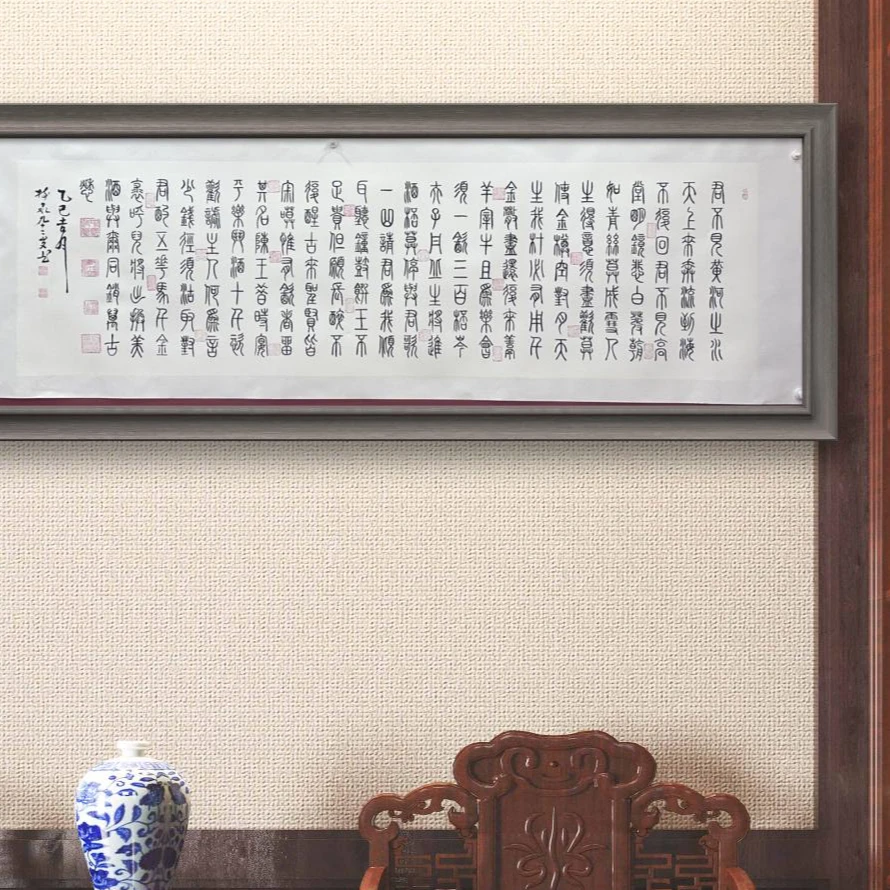 君不見黃河之水
天上來奔流到海
不復回君不見高
堂明鏡悲白髮朝
如青絲莫成雪人
生得意須盡歡莫
使金樽空對月天
生我材必有用千
金散盡還復來烹
羊宰牛且爲樂會
須一飲三百杯岑
夫子丹丘生將進
酒杯莫停與君歌
一曲請君爲我傾
耳聽鐘鼓饌玉不
足貴但願長醉不
復醒古來聖賢皆
寂寞惟有飲者留
其名陳王昔時宴
平樂斗酒十千恣
歡謔主人何爲言
少錢徑須沽取對
君酌五花馬千金
裘呼兒將出換美
酒與爾同銷萬古
愁
乙巳